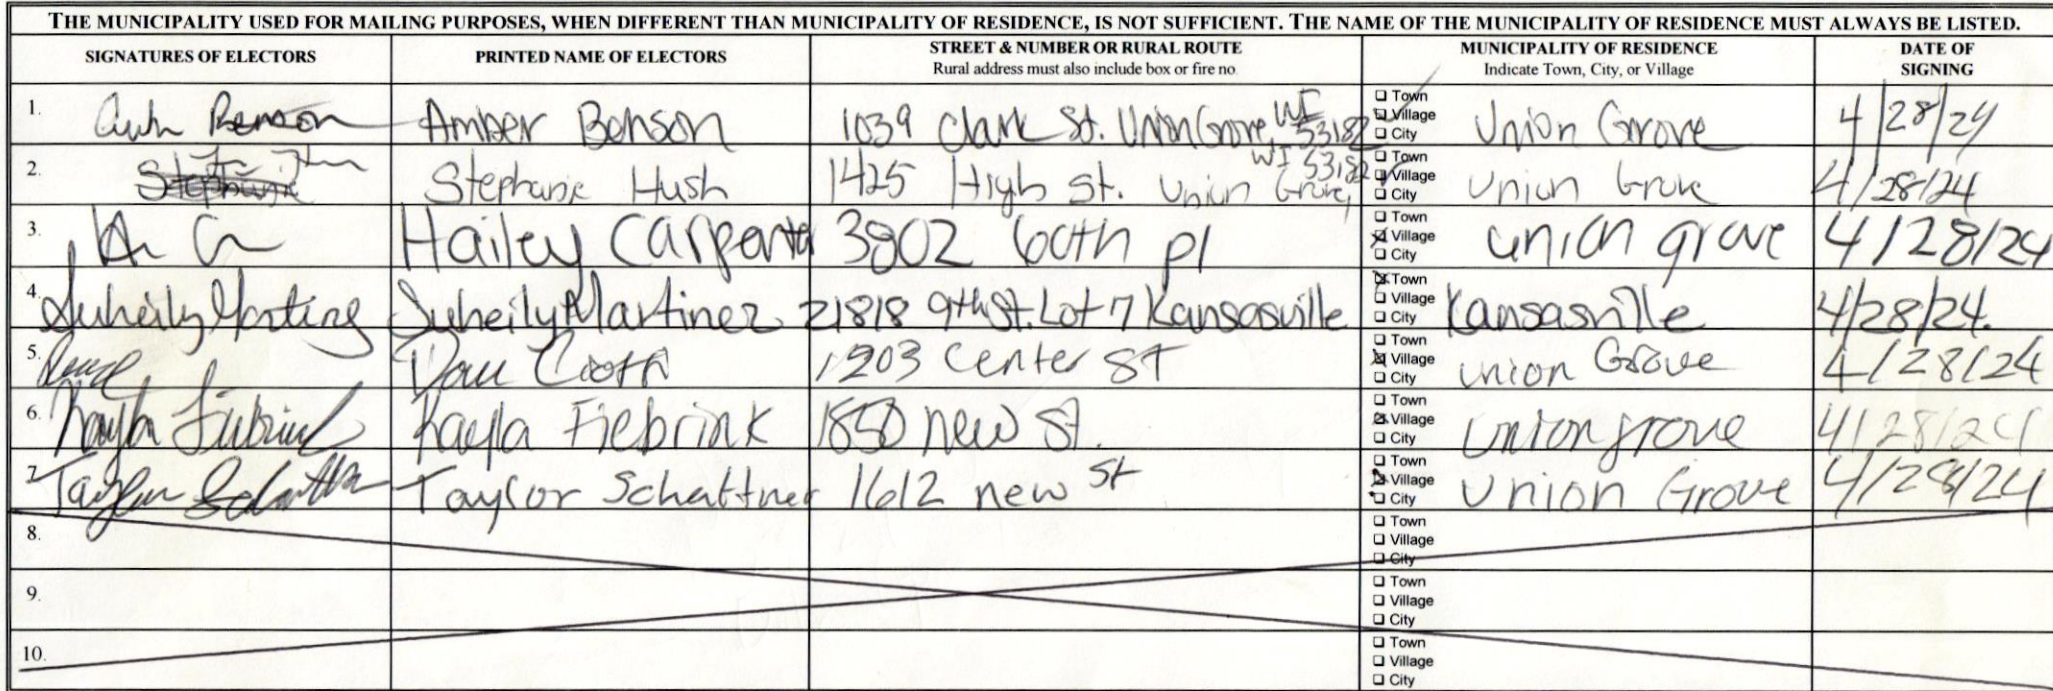 THE MUNICIPALITY USED FOR MAILING PURPOSES, WHEN DIFFERENT THAN MUNICIPALITY OF RESIDENCE, IS NOT SUFFICIENT. THE NAME OF THE MUNICIPALITY OF RESIDENCE MUST ALWAYS BE LISTED.
SIGNATURES OF ELECTORS
PRINTED NAME OF ELECTORS
STREET & NUMBER OR RURAL ROUTE
Rural address must also include box or fire no.
MUNICIPALITY OF RESIDENCE
Indicate Town, City, or Village
DATE OF SIGNING
1. Benson Amber Benson 1039 Clark St. Union Grove, WI 53182 Town Village City Union Grove 4/28/24
2. Stephanie Hush 1425 High St. Union Grove, WI 53182 Town Village City Union Grove 4/28/24
3. Hailey Carpenter 3802 60th pl Town Village City union grove 4/28/24
4. Suheily Martinez Suheily Martinez 21818 9th St. Lot 7 Kansasville Town Village City Kansasville 4/28/24.
5. 1203 Center St Town Village City union Grove 4/28/24
6. Kayla Fiebrink Kayla Fiebrink new St. Town Village City Union grove 4/28/24
7. Taylor Schattner Taylor Schattner 1612 new St Town Village City Union Grove 4/28/24
8. Town Village City
9. Town Village City
10. Town Village City